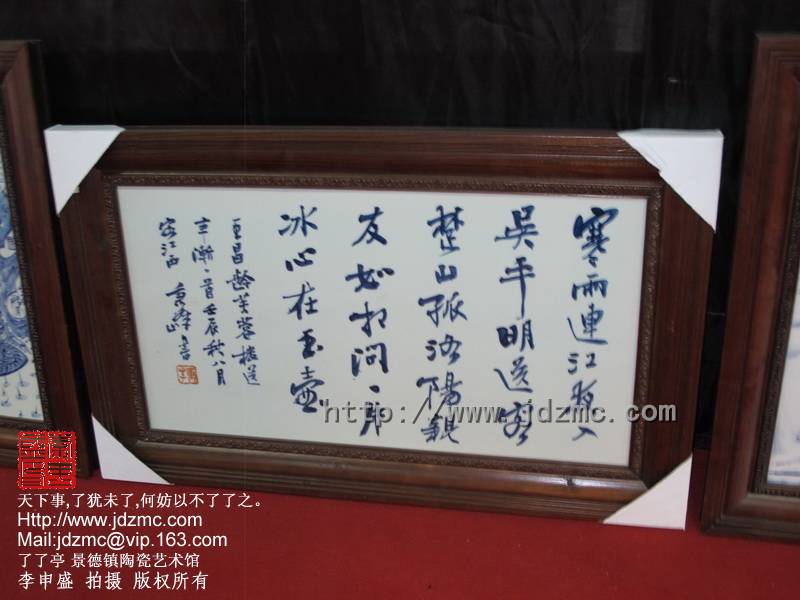 寒雨連江夜入
吳平明送客
楚山孤洛陽親
友如相問一片
冰心在玉壺
王昌齡芙蓉樓送
辛漸一首壬辰秋八月
客江西 書
http://www.jdzmc.com
天下事,了犹未了,何妨以不了了之。
Http://www.jdzmc.com
Mail:jdzmc@vip.163.com
了了亭 景德镇陶瓷艺术馆
李申盛 拍摄 版权所有